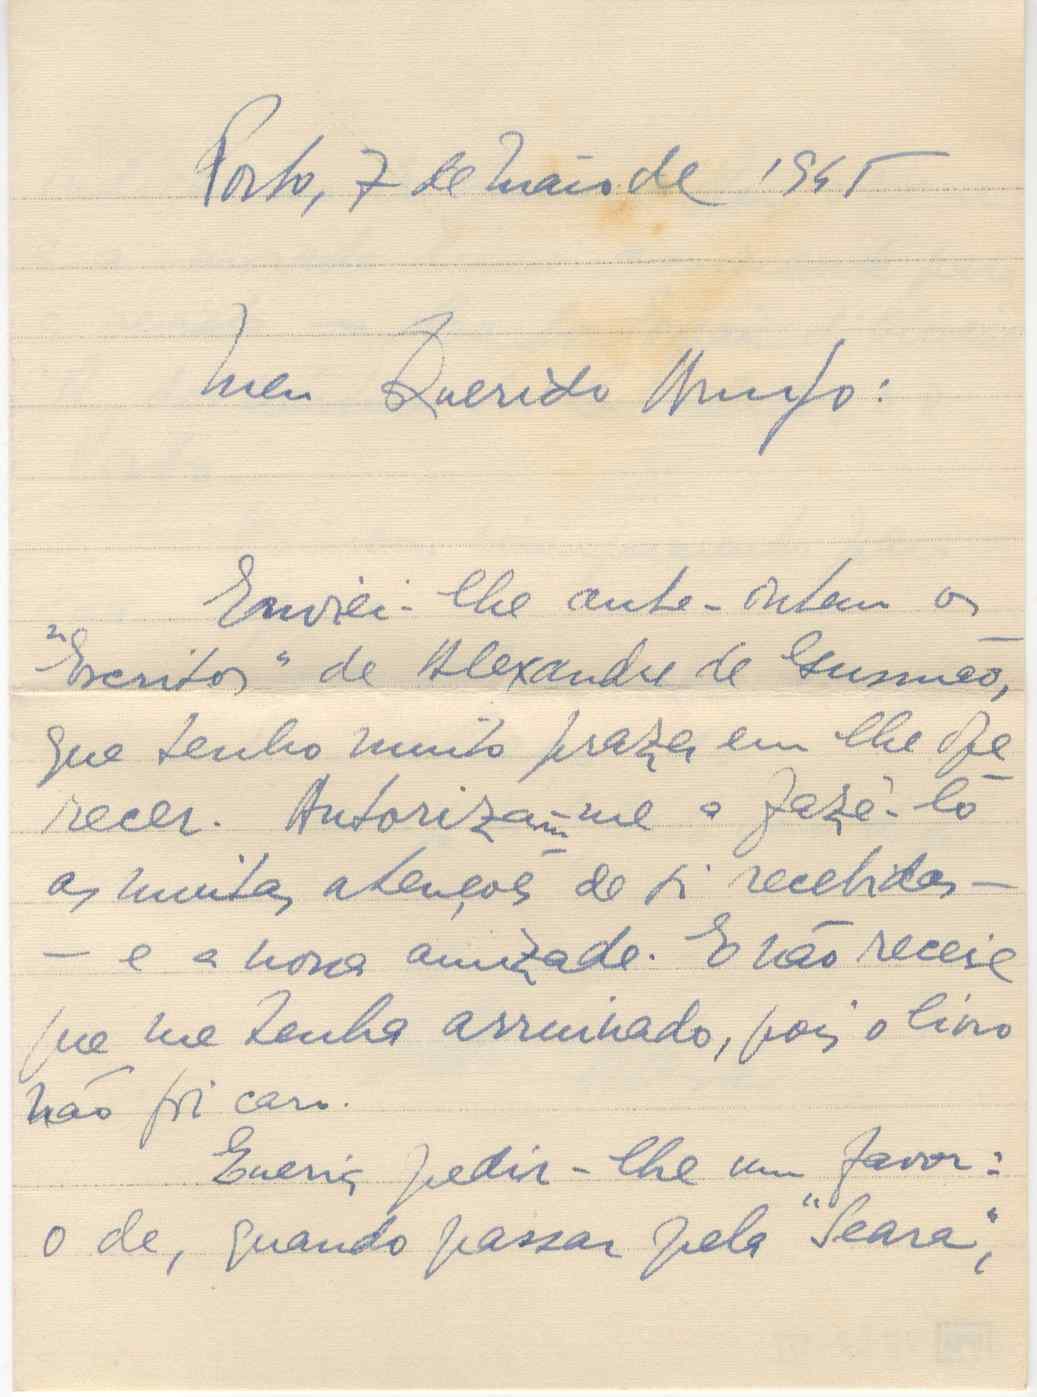 Porto, 7 de Maio de 1945
Meu Querido Araujo:
Enviei-lhe ante-ontem os
"Escritos" de Alexandre de Gusmão,
que tenho muito prazer em lhe ofe
recer. Autorizam-me a fazê-lo
as muitas atenções de si recebidas —
— e a nossa amizade. E não receie
que me tenha arruinado, pois o livro
não foi caro.
Queria pedir-lhe um favor:
o de, quando passar pela "Seara",